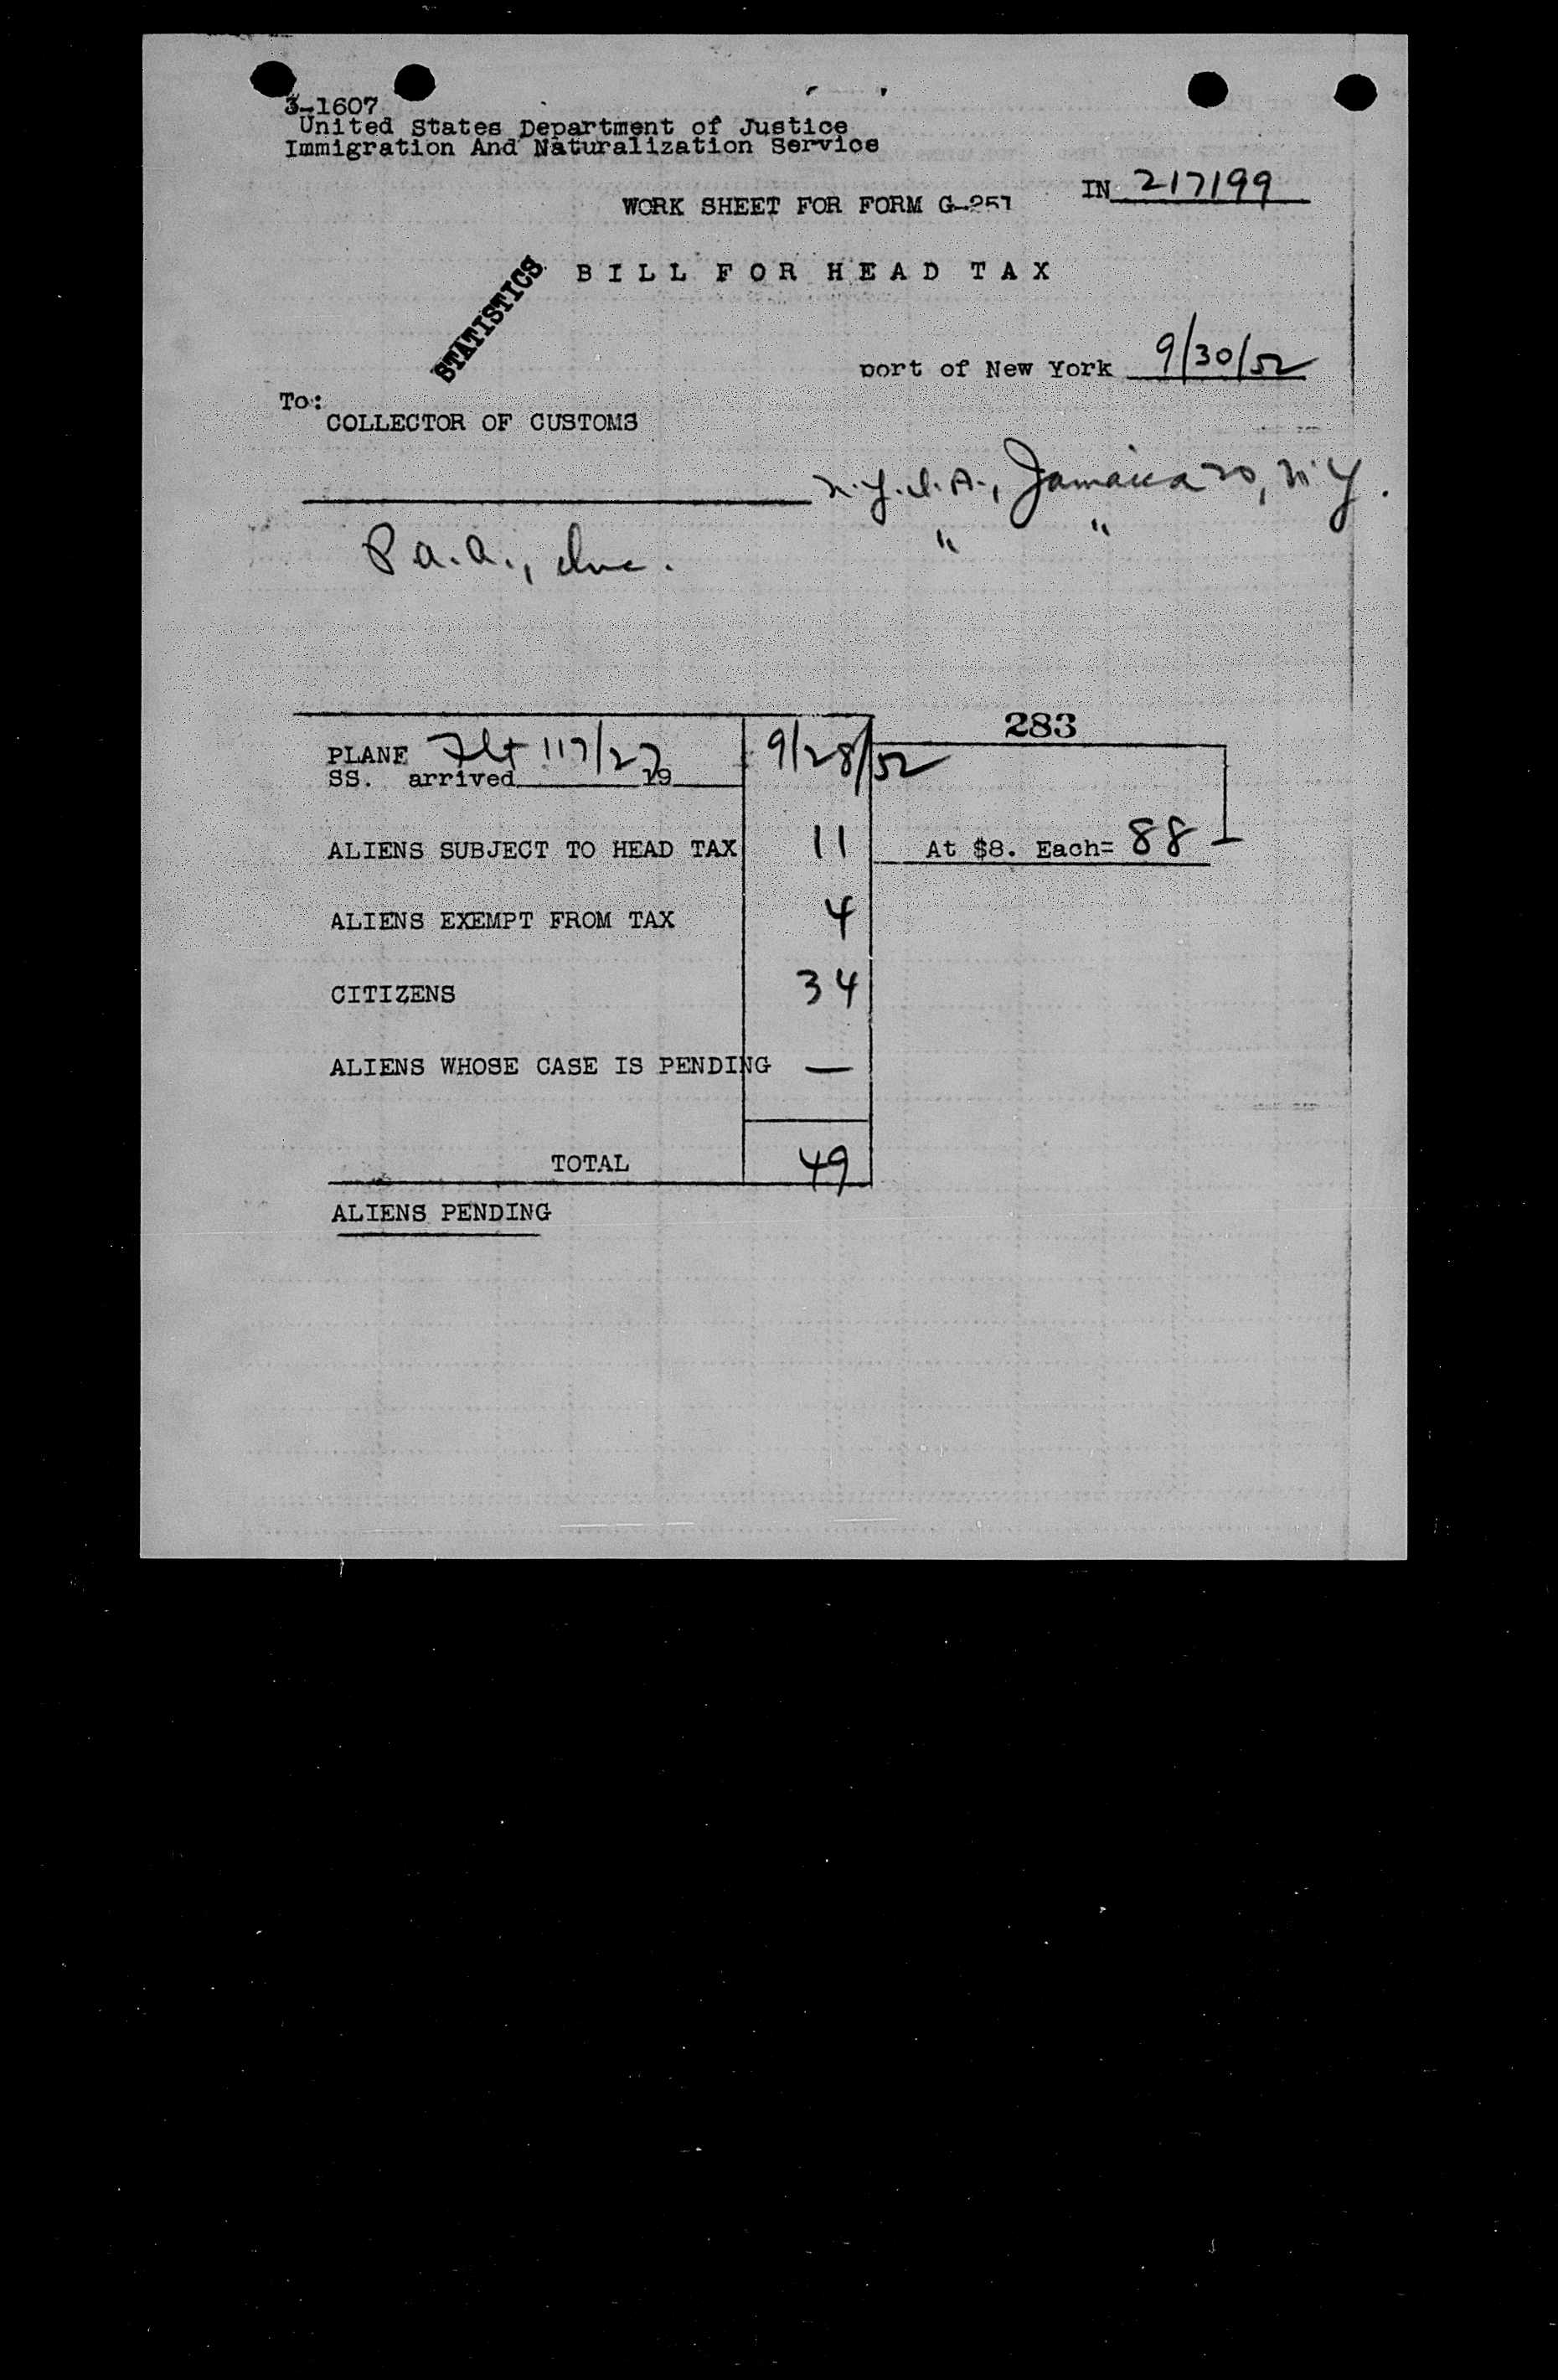 3-1607
United States Department of Justice
Immigration And Naturalization Service
IN 217199
WORK SHEET FOR FORM G-251
STATISTICS
BILL FOR HEAD TAX
port of New York 9/30/52
To:
COLLECTOR OF CUSTOMS
N.Y.I.A., Jamaica 20, N.Y.
P.A.A., Inc. " "
283
PLANE Flt 117/27 9/28/52
SS. arrived 19
ALIENS SUBJECT TO HEAD TAX 11 At $8. Each= 88
ALIENS EXEMPT FROM TAX 4
CITIZENS 34
ALIENS WHOSE CASE IS PENDING —
TOTAL 49
ALIENS PENDING